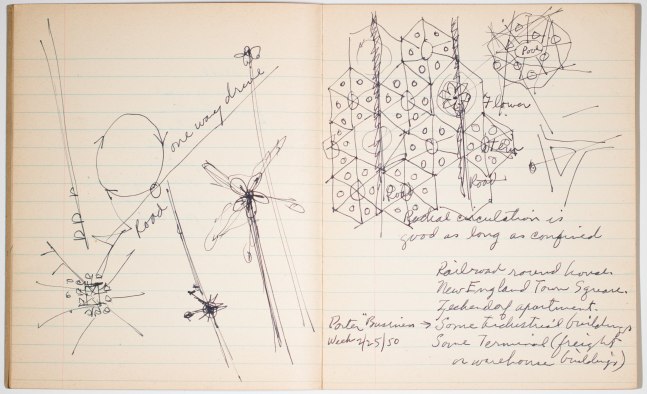 one way drive
Road
Pool
Flower
Road
Road
Radial circulation is
good as long as confined
Railroad round house.
New England Town Square.
Zeckendorf apartment.
Porter Business → Some industrial buildings
Week 2/25/50 Some Terminal (freight
or warehouse buildings)